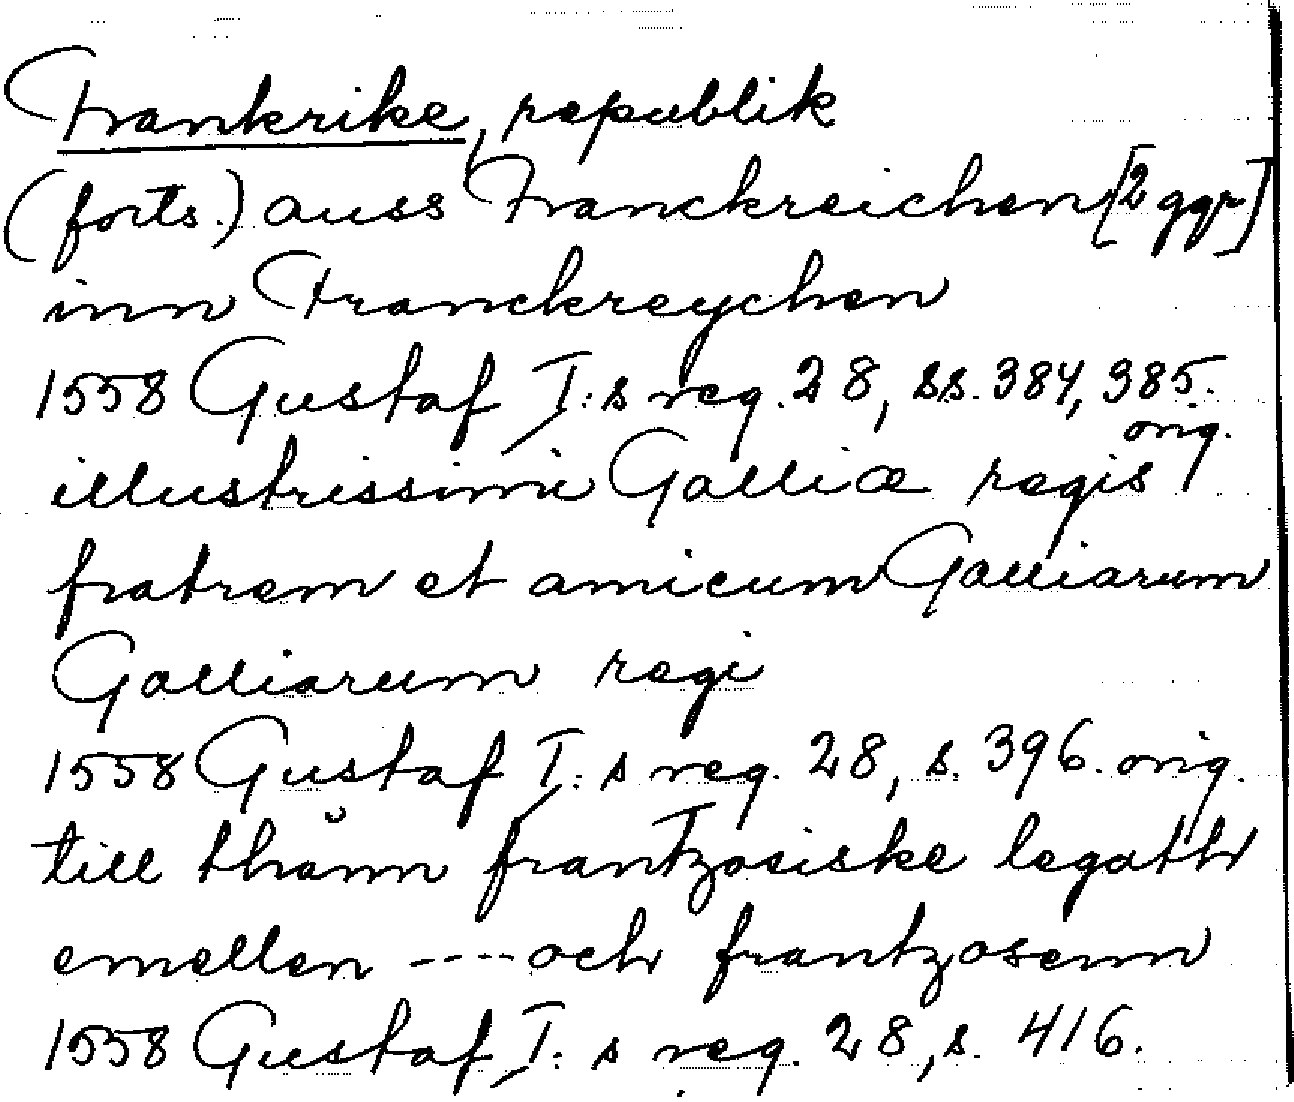 Frankrike, republik
(forts.) auss Franckreichen [2 ggr]
inn Franckreychen
1558 Gustaf I:s reg. 28, ss. 384, 385.
orig.
illustrissimi Galliæ regis
fratrem et amicum Galliarum
Galliarum regi
1558 Gustaf I:s reg. 28, s. 396. orig.
till thånn frantzosiske legath
emellen ---- och frantzosenn
1558 Gustaf I:s reg. 28, s. 416.